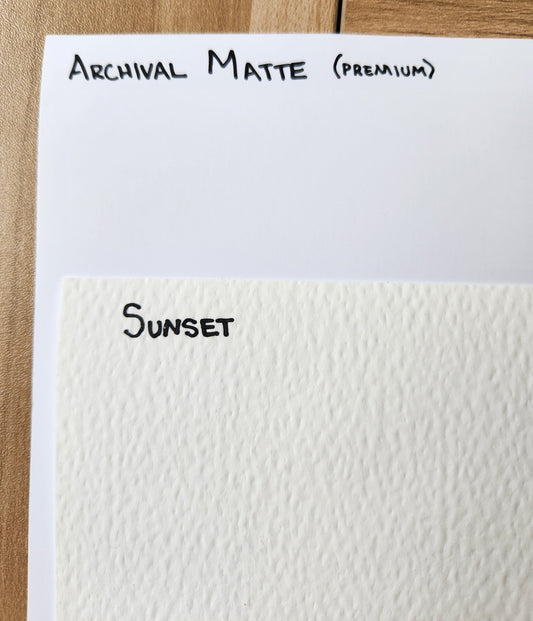 ARCHIVAL MATTE (PREMIUM)
SUNSET